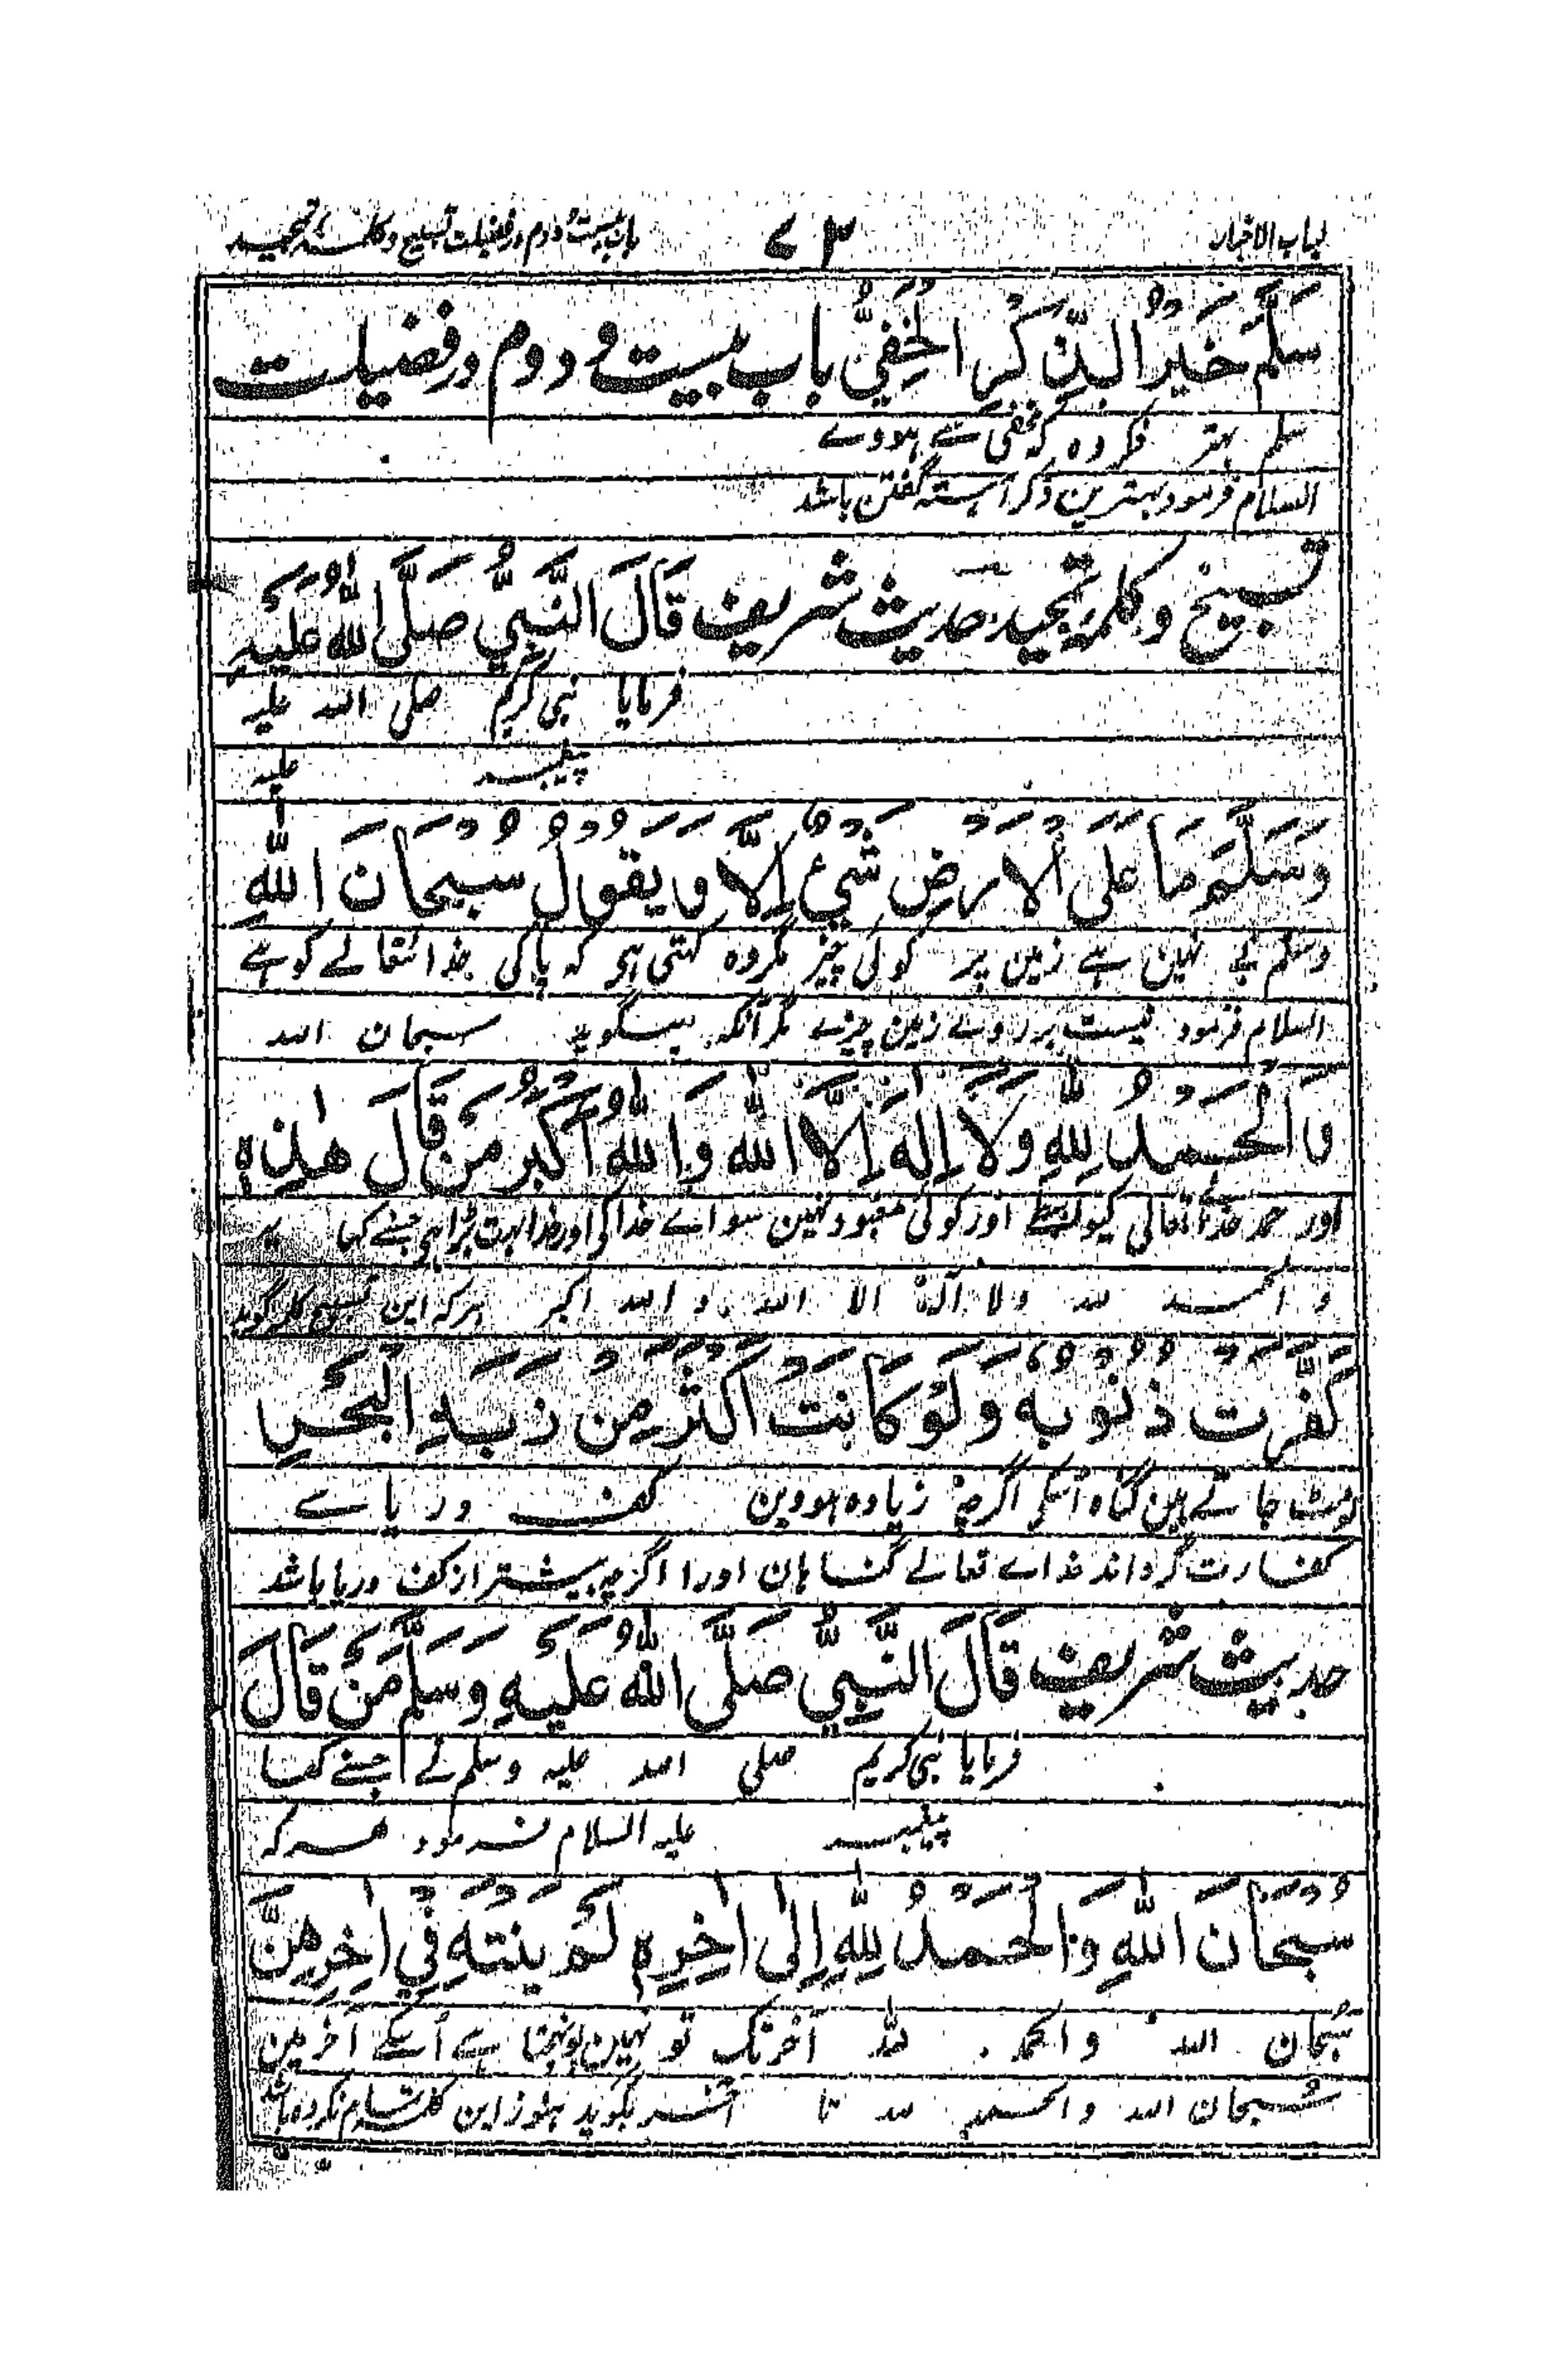 لباب الاخبار ۷۳ باب بیست و دوم در فضیلت تسبیح و کلمۂ تمجید
سَلَّمَ خَيْرُ الذِّكْرِ الْخَفِيُّ باب بیست و دوم در فضیلت
سلم بہتر ذکر وہ کہ مخفی سے ہووے
السلام فرمود بہترین ذکر آہستہ گفتن باشد
تسبیح و کلمۂ تمجید حدیث شریف قَالَ النَّبِيُّ صَلَّى اللهُ عَلَيْهِ
فرمایا نبی کریم صلی اللہ علیہ
پیغمبر علیہ
وَسَلَّمَ مَا عَلَى الْاَرْضِ شَيْءٌ اِلَّا وَيَقُوْلُ سُبْحَانَ اللهِ
وسلم نے نہین ہے زمین پر کوئی چیز مگر وہ کہتی ہو کہ پاکی خدائتعالے کو ہے
السلام فرمود نیست بر روے زمین چیزے مگر آنکہ میگوید سبحان اللہ
وَالْحَمْدُ لِلّٰهِ وَلَا اِلٰهَ اِلَّا اللهُ وَاللهُ اَكْبَرُ مَنْ قَالَ هٰذِهٖ
اور حمد خدا تعالی کیواسطے اور کوئی معبود نہین سواے خدا کی اور خدا بہت بڑا ہی جسنے کہا یہ
و الحمد للہ ولا الہ الا اللہ و اللہ اکبر ہر کہ این تسبیح کلمہ گوید
كَفَّرَتْ ذُنُوْبَهٗ وَلَوْ كَانَتْ اَكْثَرَ مِنْ زَبَدِ الْبَحْرِ
مٹ جاتے ہین گناہ اسکے اگرچہ زیادہ ہووین کف دریا سے
کفارت گرداند خداے تعالے گناہان اورا اگرچہ بیشتر از کف دریا باشد
حدیث شریف قَالَ النَّبِيُّ صَلَّى اللهُ عَلَيْهِ وَسَلَّمَ مَنْ قَالَ
فرمایا نبی کریم صلی اللہ علیہ وسلم نے جسنے کہا
پیغمبر علیہ السلام فرمود ہر کہ
سُبْحَانَ اللهِ وَالْحَمْدُ لِلّٰهِ اِلٰى اٰخِرِهٖ لَمْ يَنْتَهِ فِيْ اٰخِرِهِنَّ
سبحان اللہ والحمد للہ آخر تک تو نہین پونہچتا ہے اسکے آخر مین
سبحان اللہ والحمد للہ تا آخر بگوید ہنوز این کلمہ تمام نکردہ باشد